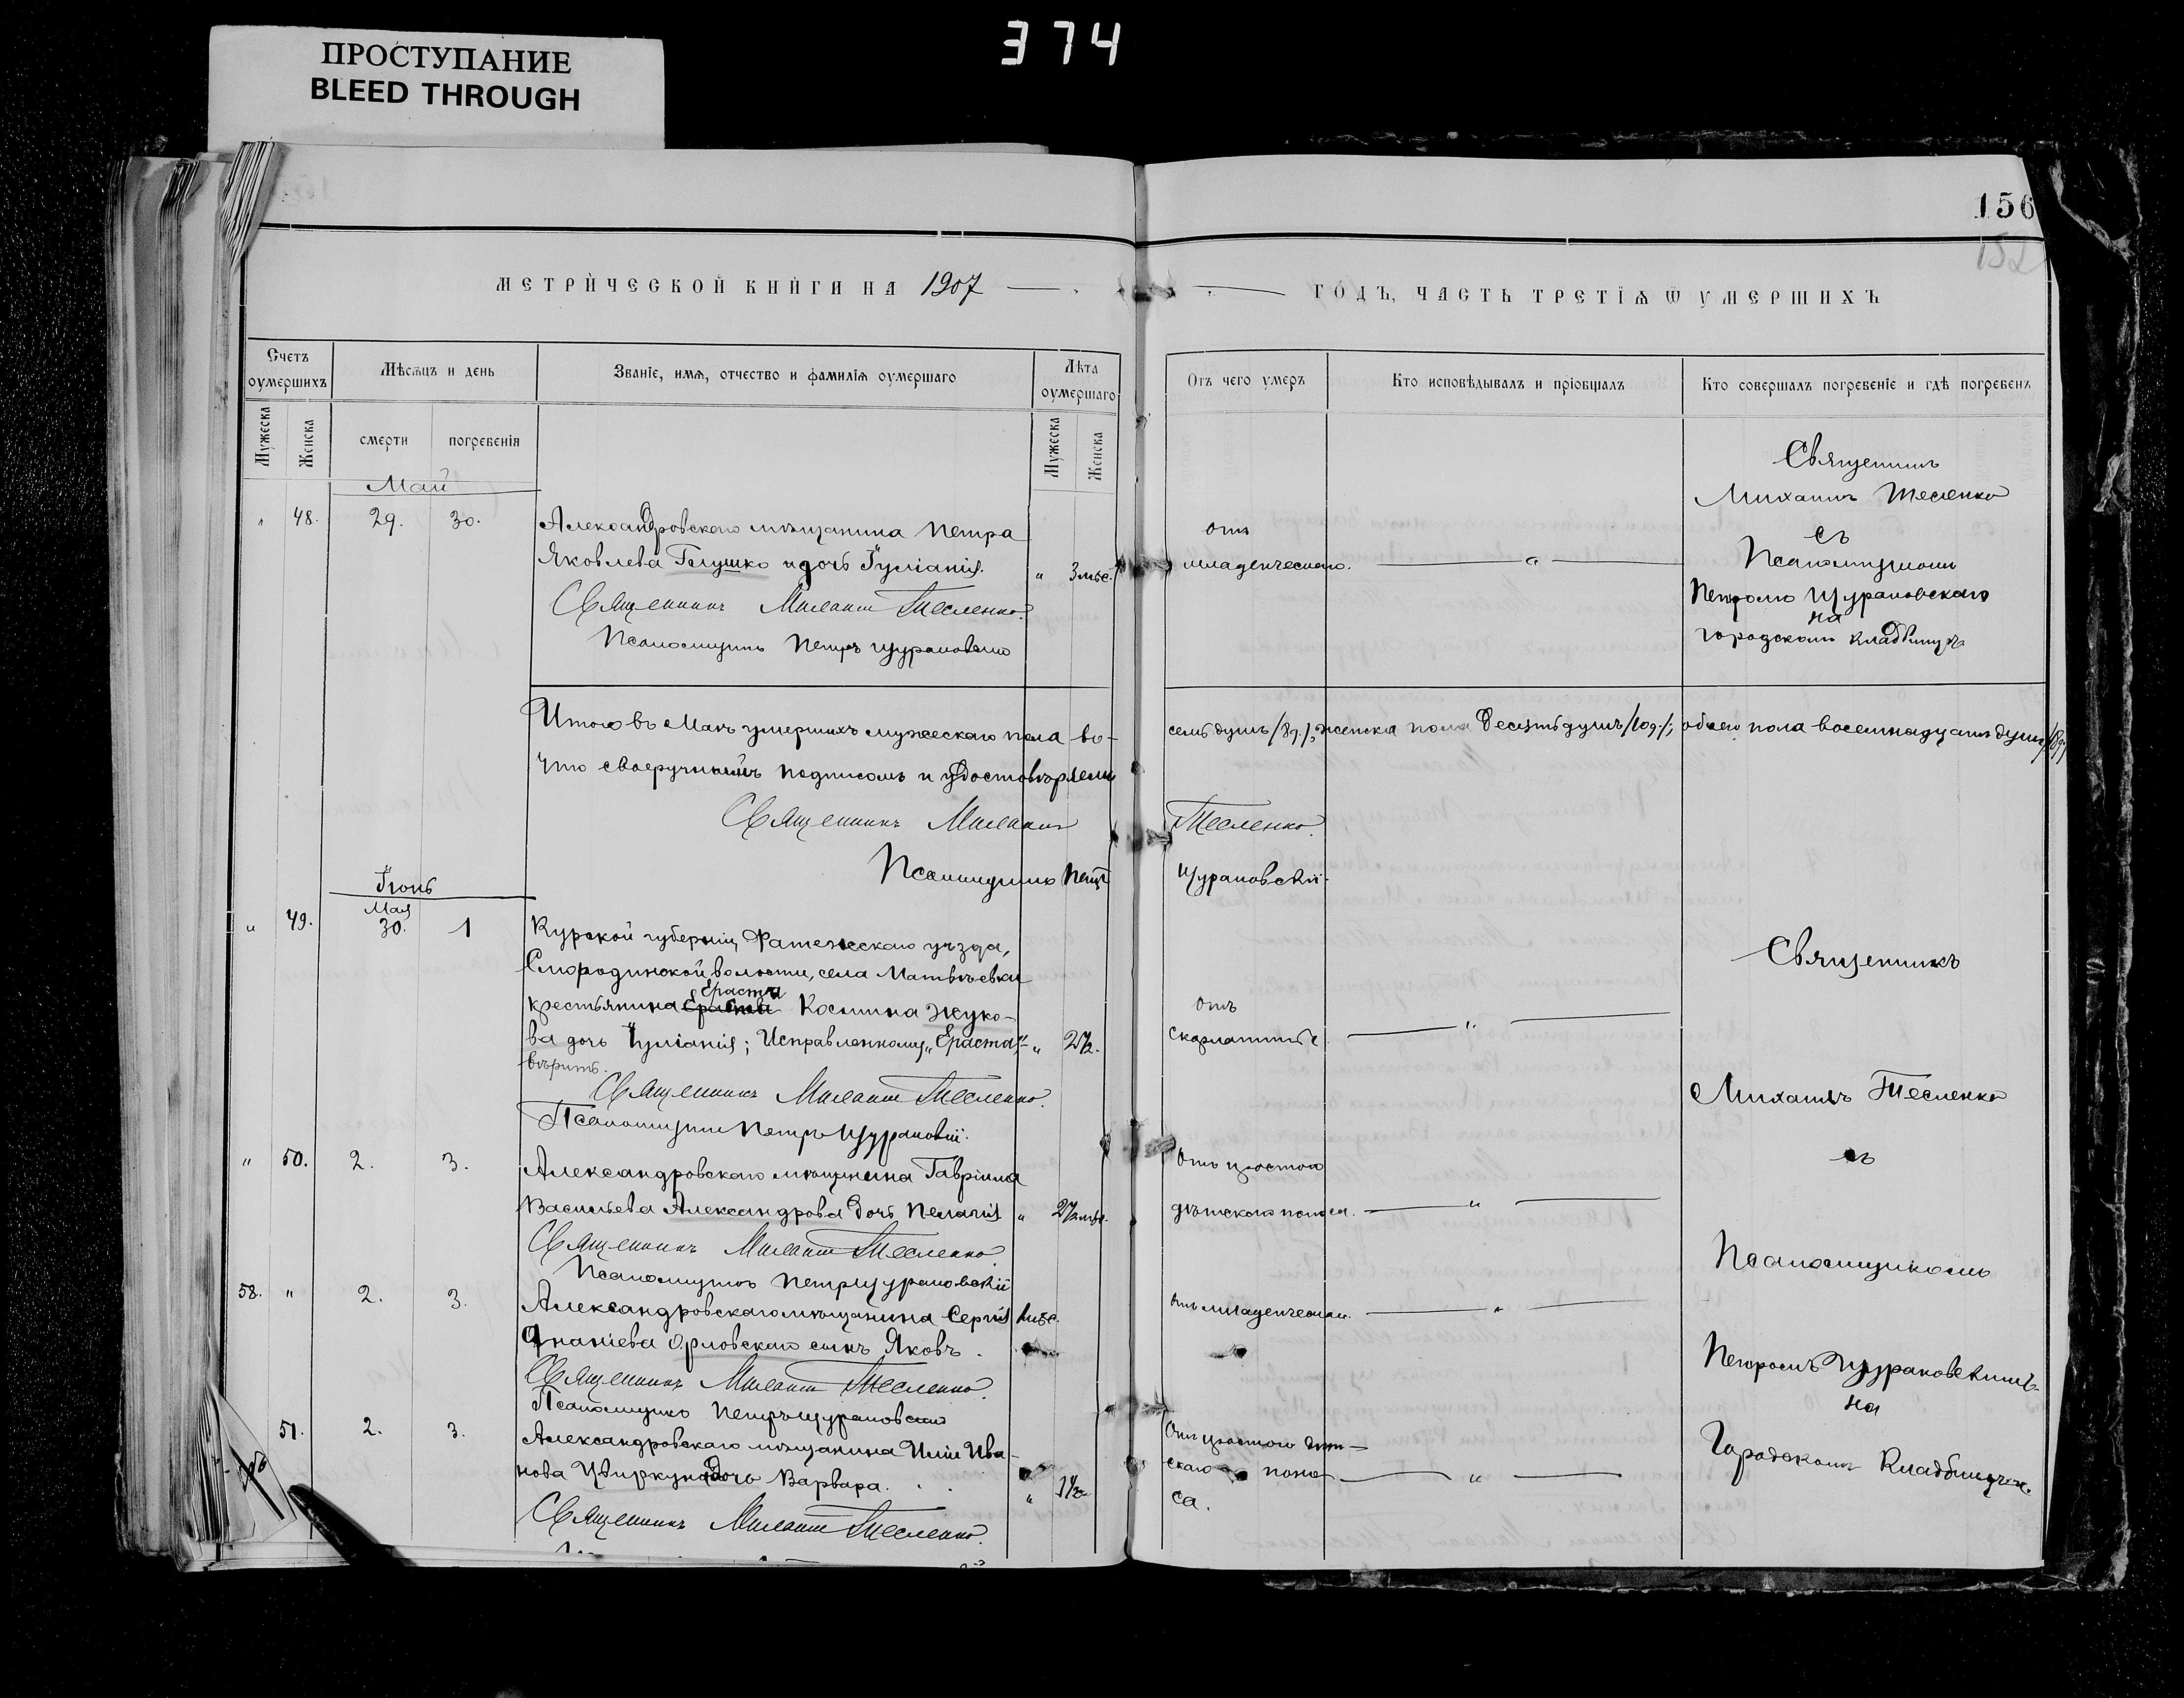 374
ПРОСТУПАНИЕ
BLEED THROUGH
156
152
МЕТРИЧЕСКОЙ КНИГИ НА 1907
ГОДЪ, ЧАСТЬ ТРЕТІѦ Ѿ УМЕРШИХЪ
Счетъ оумершихъ
Мѣсѧцъ и день
Званіе, имѧ, отчество и фамиліѧ оумершаго
Лѣта оумершаго
Отъ чего умеръ
Кто исповѣдывалъ и пріобщалъ
Кто совершалъ погребеніе и гдѣ погребенъ
Мужеска
Женска
смерти
погребенія
Мужеска
Женска
Май
" 48. 29. 30.
Александровскаго мѣщанина Петра
Яковлева Глушко дочь Іуліанія. " 3 мѣс.
Священникъ Михаилъ Тесленко.
Псаломщикъ Петръ Щурановскій
отъ
младенческаго. "
Священникъ
Михаилъ Тесленко
съ
Псаломщикомъ
Петромъ Щурановскимъ
на
городскомъ кладбищѣ
Итого въ Маѣ умершихъ мужескаго пола во-
семь душъ /8 д./, женска пола десять душъ /10 д./; обоего пола восемнадцать душъ /18 д./
что своеручнымъ подписомъ и удостовѣряемъ
Священникъ Михаилъ Тесленко.
Псаломщикъ Петръ Щурановскій.
Іюнь
Мая
" 49. 30. 1
Курской губерніи, Фатежскаго уѣзда,
Смородинской волости, села Матвѣевки
Ераста
крестьянина Косьмина Жуко-
ва дочь Іуліанія; Исправленному „Ераста" " 2½.
вѣрить.
Священникъ Михаилъ Тесленко.
Псаломщикъ Петръ Щурановскій.
отъ
скарлатины. "
" 50. 2. 3.
Александровскаго мѣщанина Гавріила
Васильева Александрова дочь Пелагія " 2½ мѣс.
Священникъ Михаилъ Тесленко.
Псаломщикъ Петръ Щурановскій
Отъ простого
дѣтскаго поноса. "
58. " 2. 3.
Александровскаго мѣщанина Сергія 1 мѣс.
Ананіева Орловскаго сынъ Яковъ.
Священникъ Михаилъ Тесленко.
Псаломщикъ Петръ Щурановскій
отъ младенческаго. "
51. 2. 3.
Александровскаго мѣщанина Иліи Ива-
нова Цвиркуна дочь Варвара. " 1½
Священникъ Михаилъ Тесленко.
Отъ простого дѣт-
скаго поно-
са. "
Священникъ
Михаилъ Тесленко
съ
Псаломщикомъ
Петромъ Щурановскимъ
на
Городскомъ Кладбищѣ.